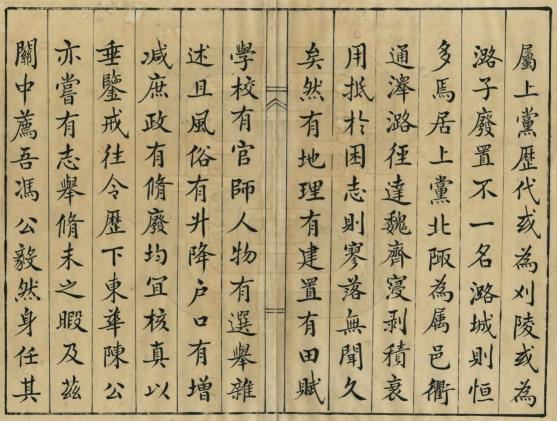 屬上黨歷代或為刈陵或為
潞子廢置不一名潞城則恒
多焉居上黨北陬為属邑衢
通澤潞徑達魏齊寖剥積衰
用抵於困志則寥落無聞久
矣然有地理有建置有田賦
學校有官師人物有選舉雜
述且風俗有升降户口有增
减庶政有脩廢均宜核真以
垂鑒戒往令歷下東華陳公
亦嘗有志舉脩未之暇及茲
關中薦吾馮公毅然身任其